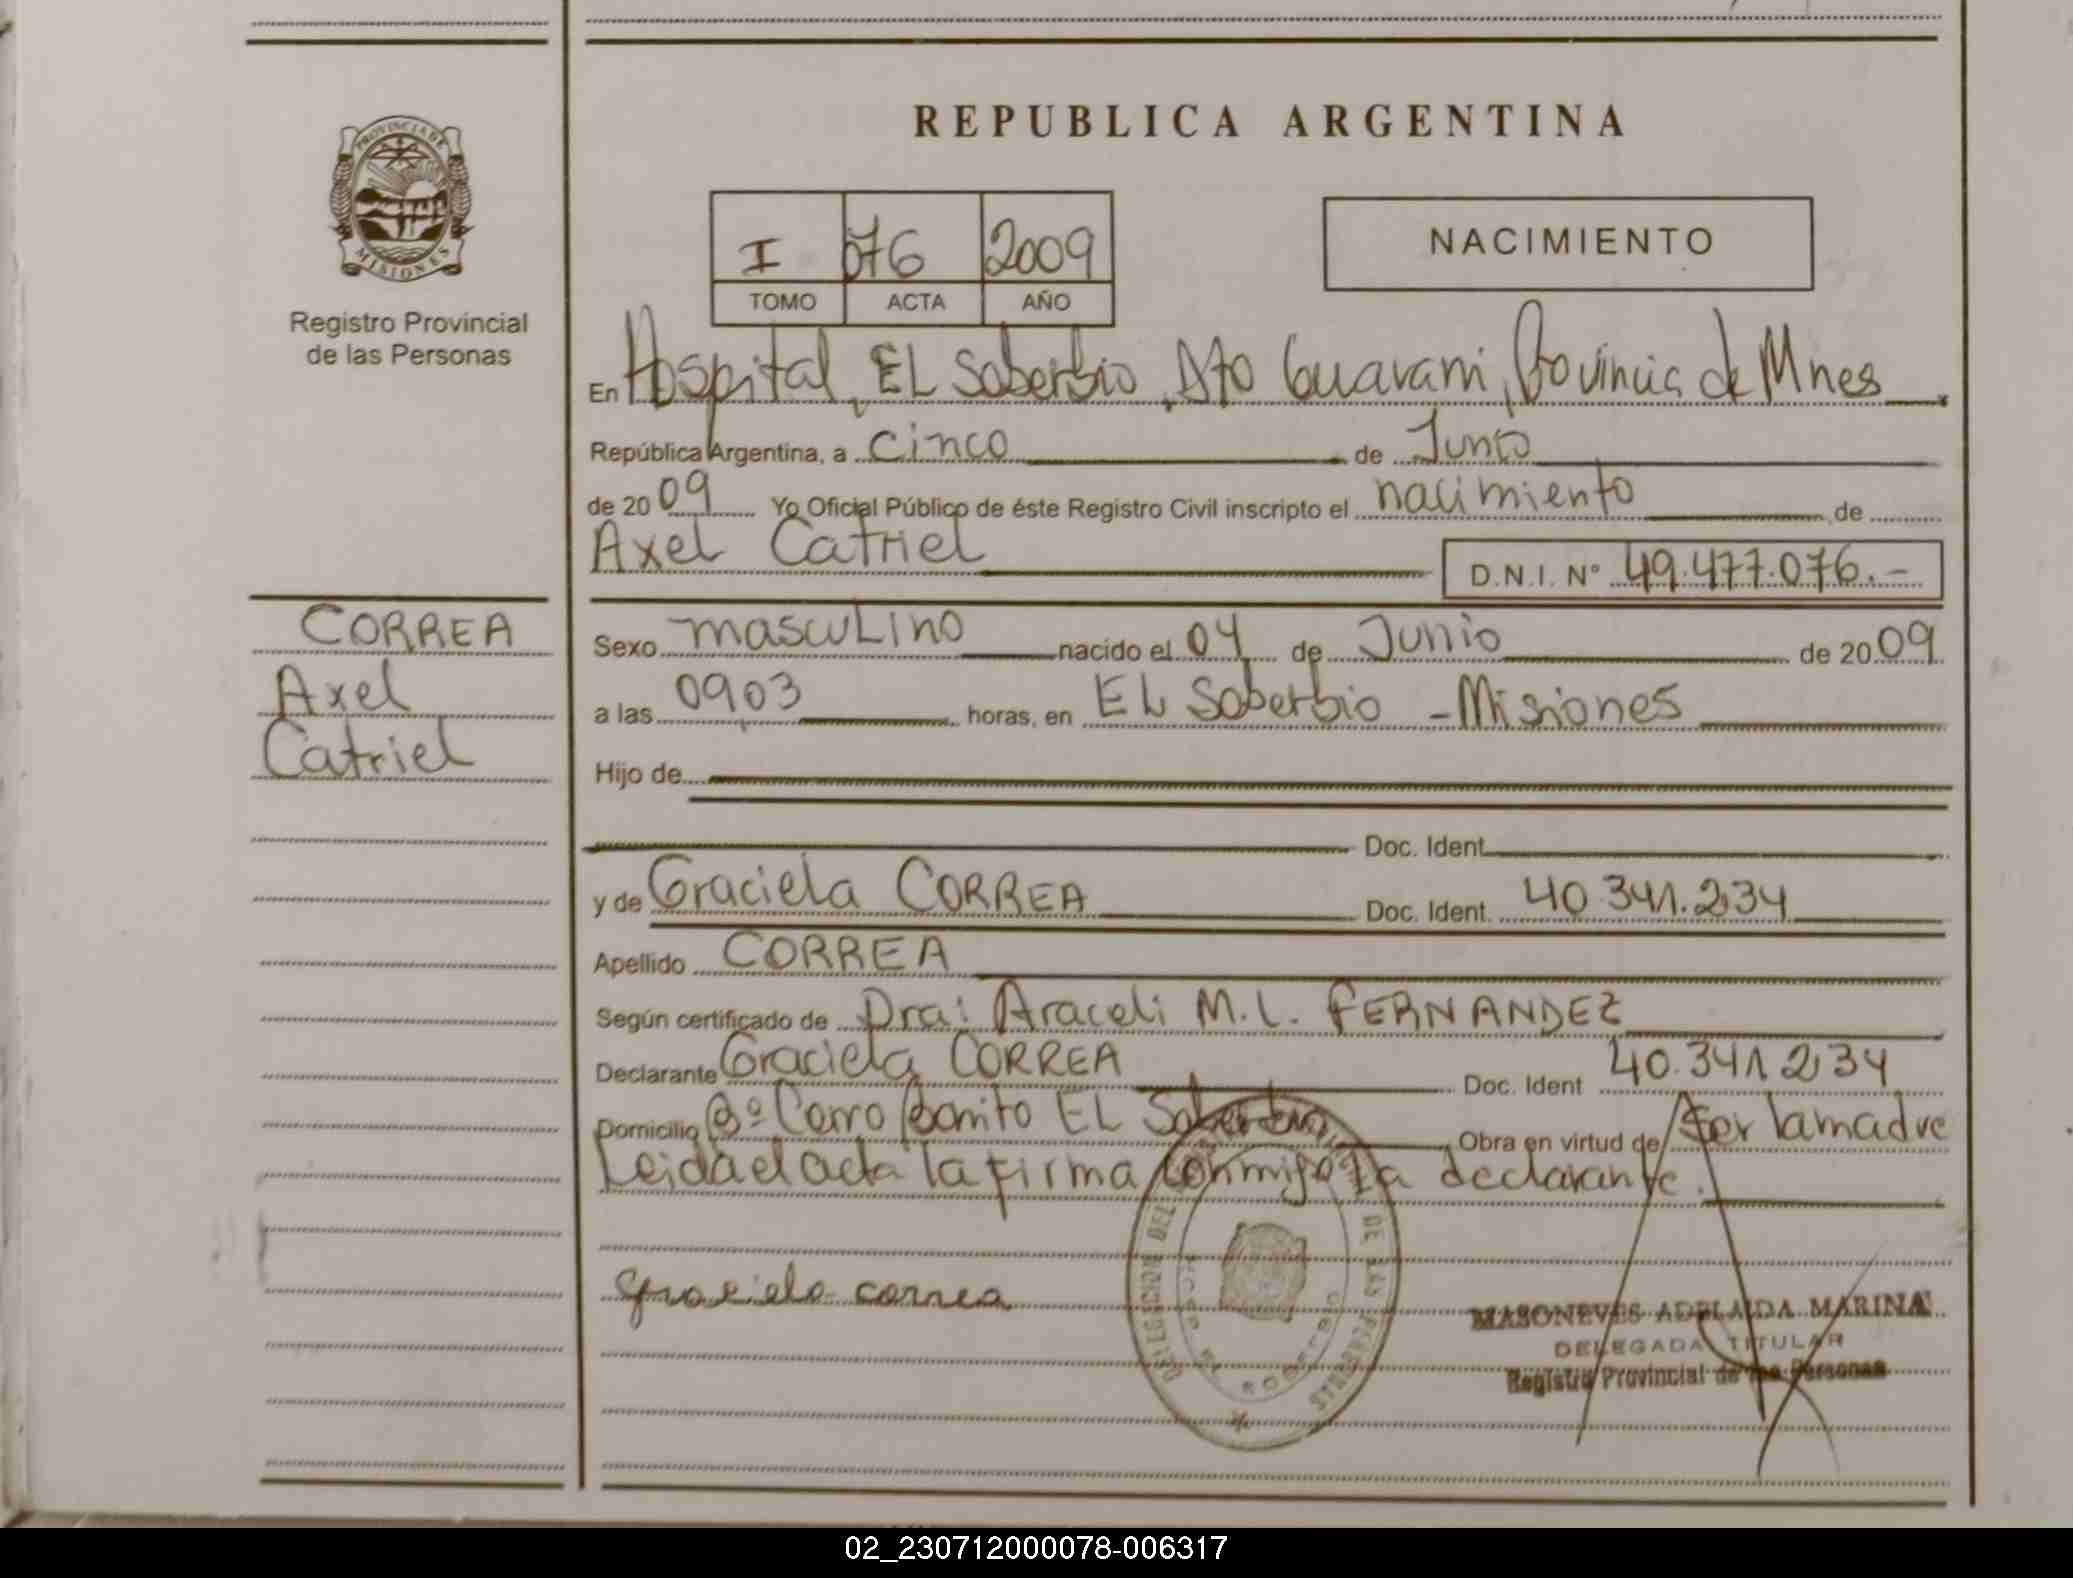 REPUBLICA ARGENTINA
PROVINCIA DE
MISIONES
Registro Provincial
de las Personas
I 076 2009
TOMO ACTA AÑO
NACIMIENTO
En Hospital, EL Soberbio, Dto Guarani, Provincia de Mnes
República Argentina, a cinco de Junio
de 2009 Yo Oficial Público de éste Registro Civil inscripto el nacimiento de
Axel Catriel D.N.I. N° 49.477.076.-
CORREA
Axel
Catriel
Sexo masculino nacido el 04 de Junio de 2009
a las 0903 horas, en EL Soberbio - Misiones
Hijo de
Doc. Ident.
y de Graciela CORREA Doc. Ident. 40.341.234
Apellido CORREA
Según certificado de Dra: Araceli M.L. FERNANDEZ
Declarante Graciela CORREA Doc. Ident 40.341.234
Domicilio Bº Cerro Bonito EL Soberbio Obra en virtud de Ser la madre
Leida el acta la firma conmigo la declarante.
graciela correa
DELEGACION DEL DE LAS PERSONAS
MASONEVES ADELAIDA MARINA
DELEGADA TITULAR
Registro Provincial de las Personas
02_230712000078-006317